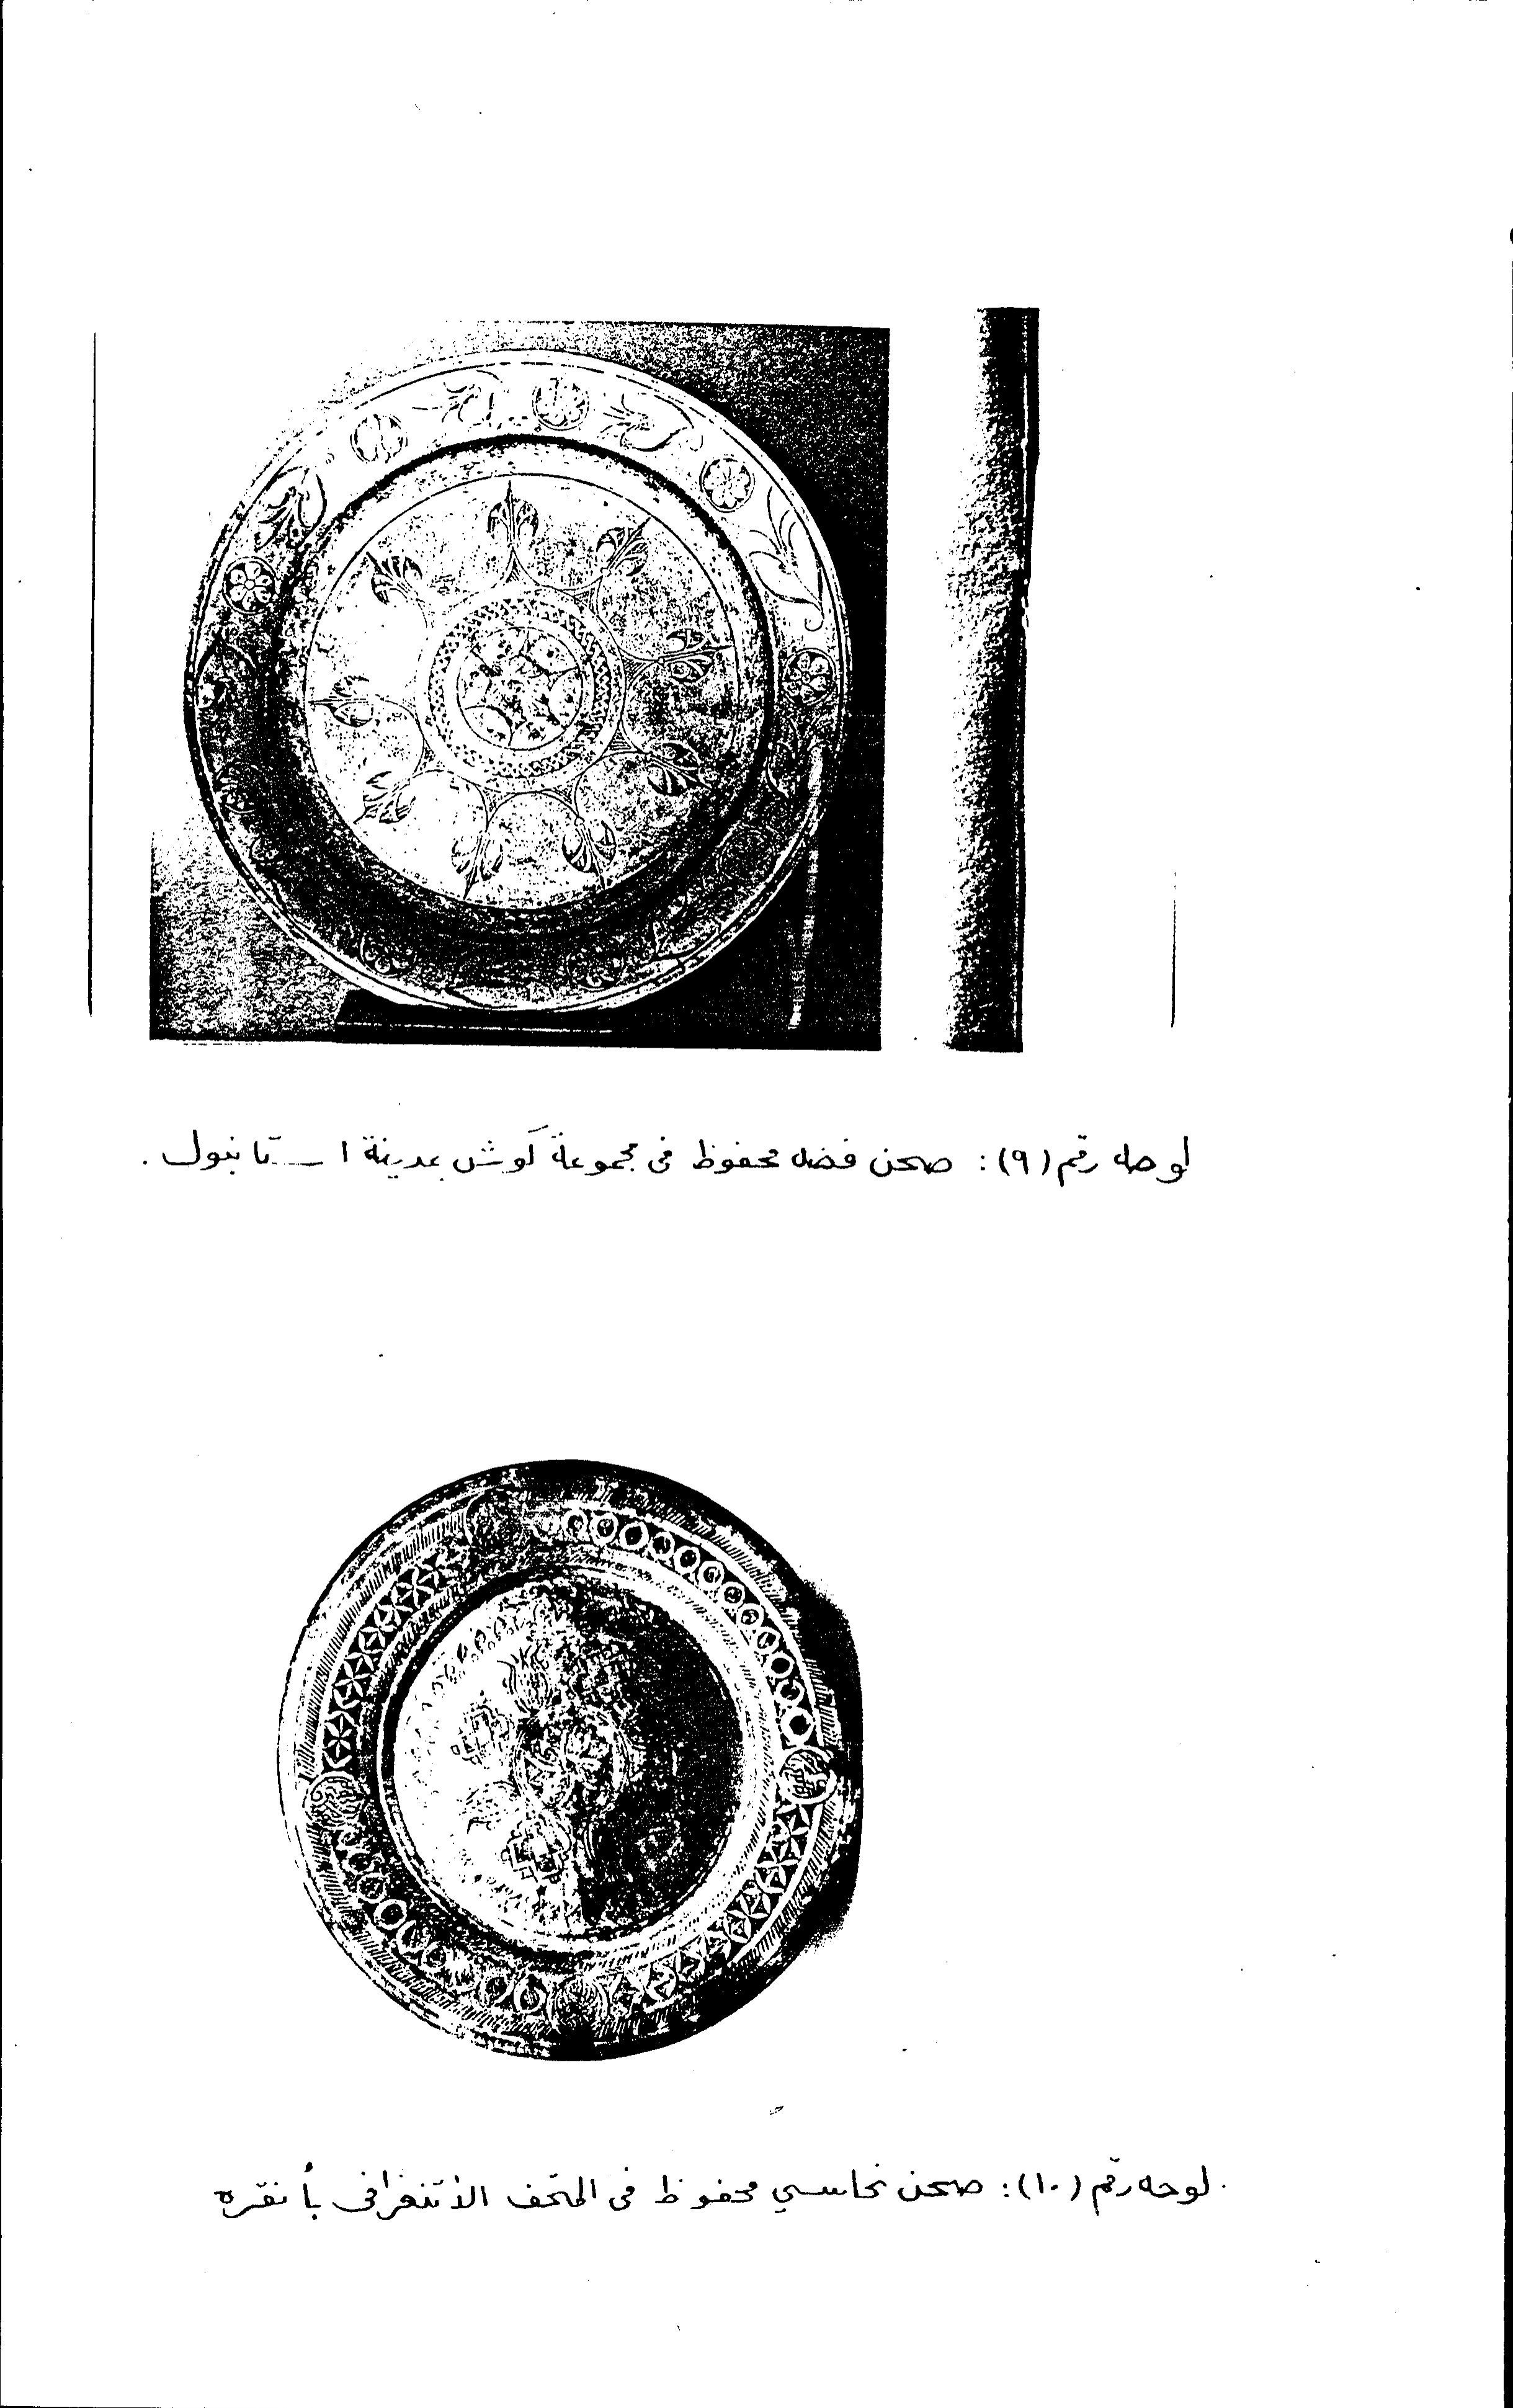 لوحه رقم (٩): صحن فضه محفوظ فى مجموعة كوش بمدينة استانبول .
لوحه رقم (١٠): صحن نحاسي محفوظ فى المتحف الاتنغرافى بأنقره